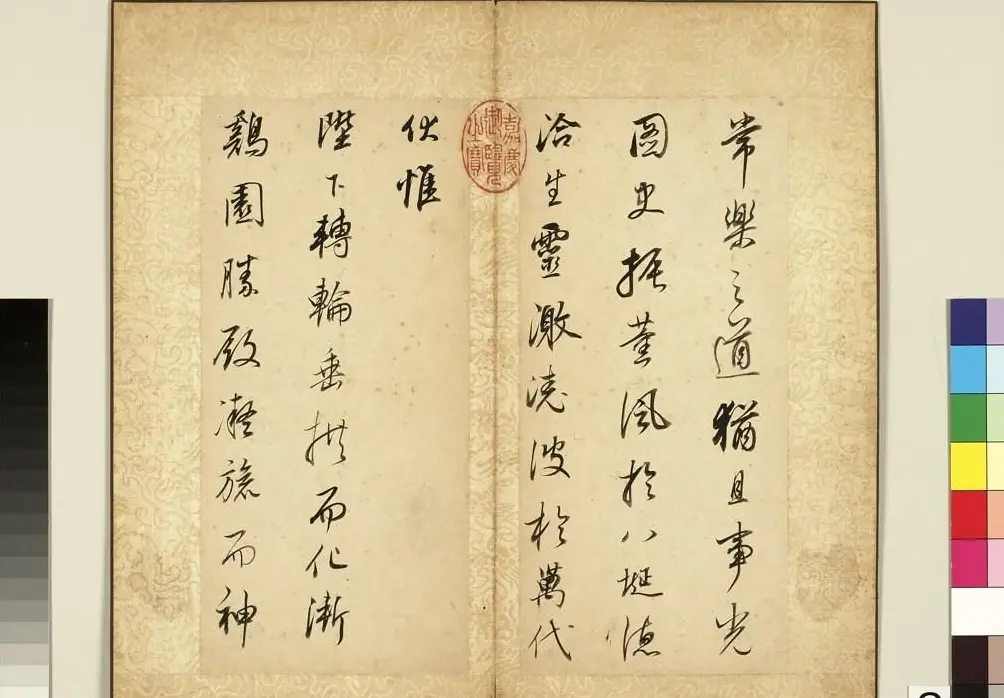 常樂之道猶且事光
圖史振薰風於八埏德
洽生靈激澆波於萬代
嘉慶御覽之寶
伏惟
陛下轉輪垂拱而化漸
鷄園勝殿凝旒而神